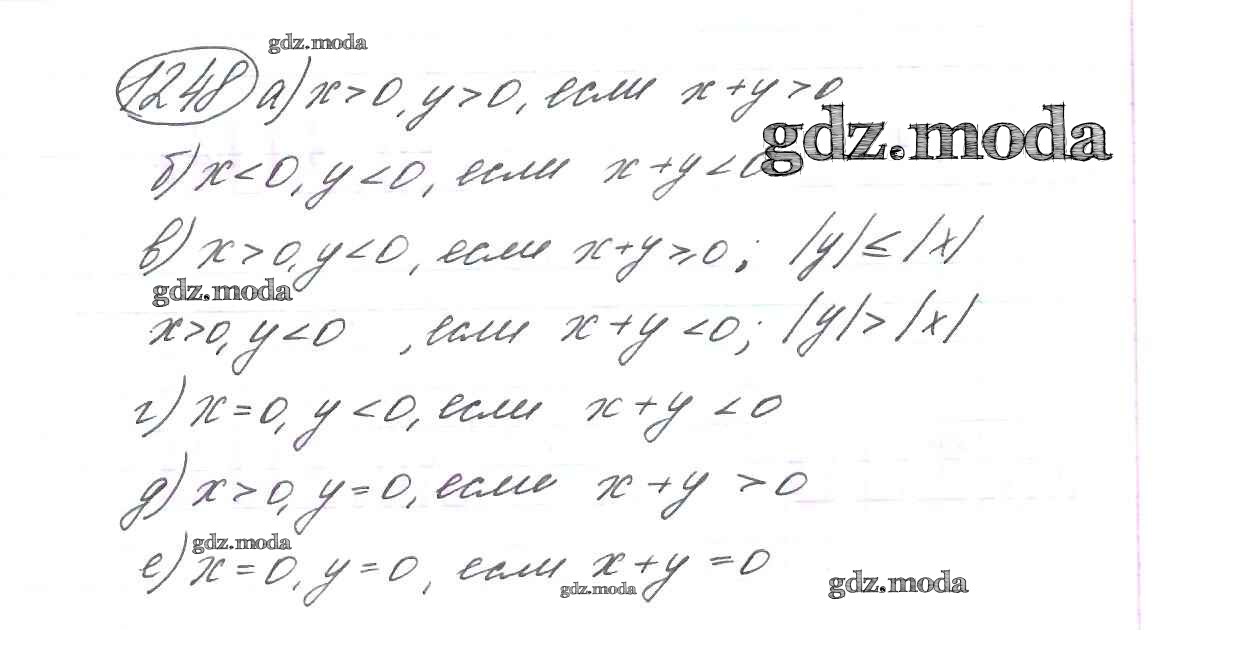 gdz.moda
1248 а) x>0, y>0, если x+y>0
gdz.moda
б) x<0, y<0, если x+y<0
в) x>0, y<0, если x+y≥0; |y|≤|x|
gdz.moda
x>0, y<0, если x+y<0; |y|>|x|
г) x=0, y<0, если x+y<0
д) x>0, y=0, если x+y>0
gdz.moda
е) x=0, y=0, если x+y=0
gdz.moda
gdz.moda